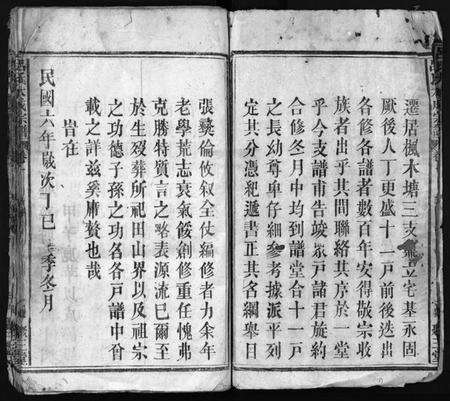 遷居楓木塘三支 立宅基永固
厥後人丁更盛十一戸前後迭出
各修各譜者數百年安得敬宗收
族者出乎其間聯絡其序於一堂
乎今支譜甫告竣眾戸諸君旋約
合修冬月中均到譜堂合十一戸
之長幼尊卑仔細參考據派平列
定其分憑紀遞書正其名綱舉目
張彝倫攸叙全仗編修者力余年
老學荒志衰氣餒創修重任愧弗
克勝特質言之畧表源流已爾至
於生歿葬所祀田山界以及祖宗
之功德子孫之功名各戸譜中曾
載之詳兹奚庸贅也哉
旹在
民國六年歲次丁巳 季冬月